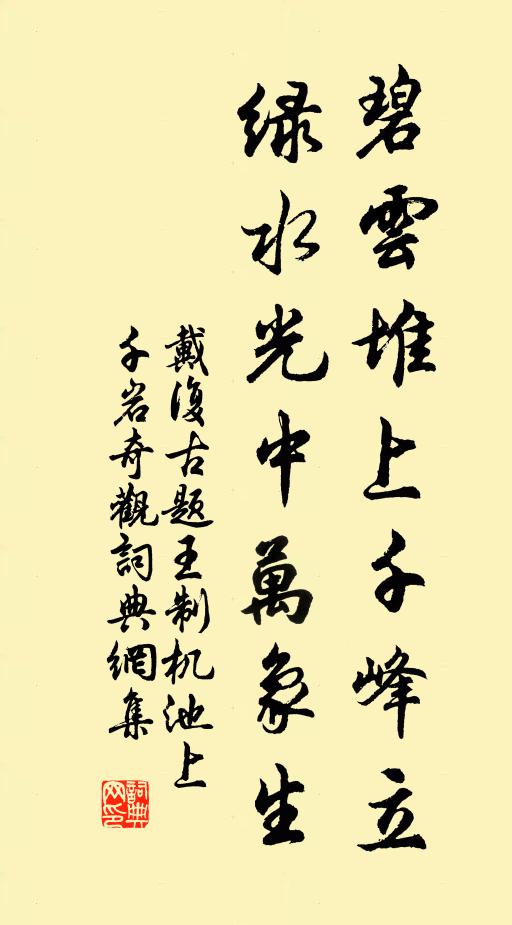 碧雲堆上千峰立
绿水光中萬象生
戴復古题王制机池上
千岩奇觀詞典網集
詞典网印